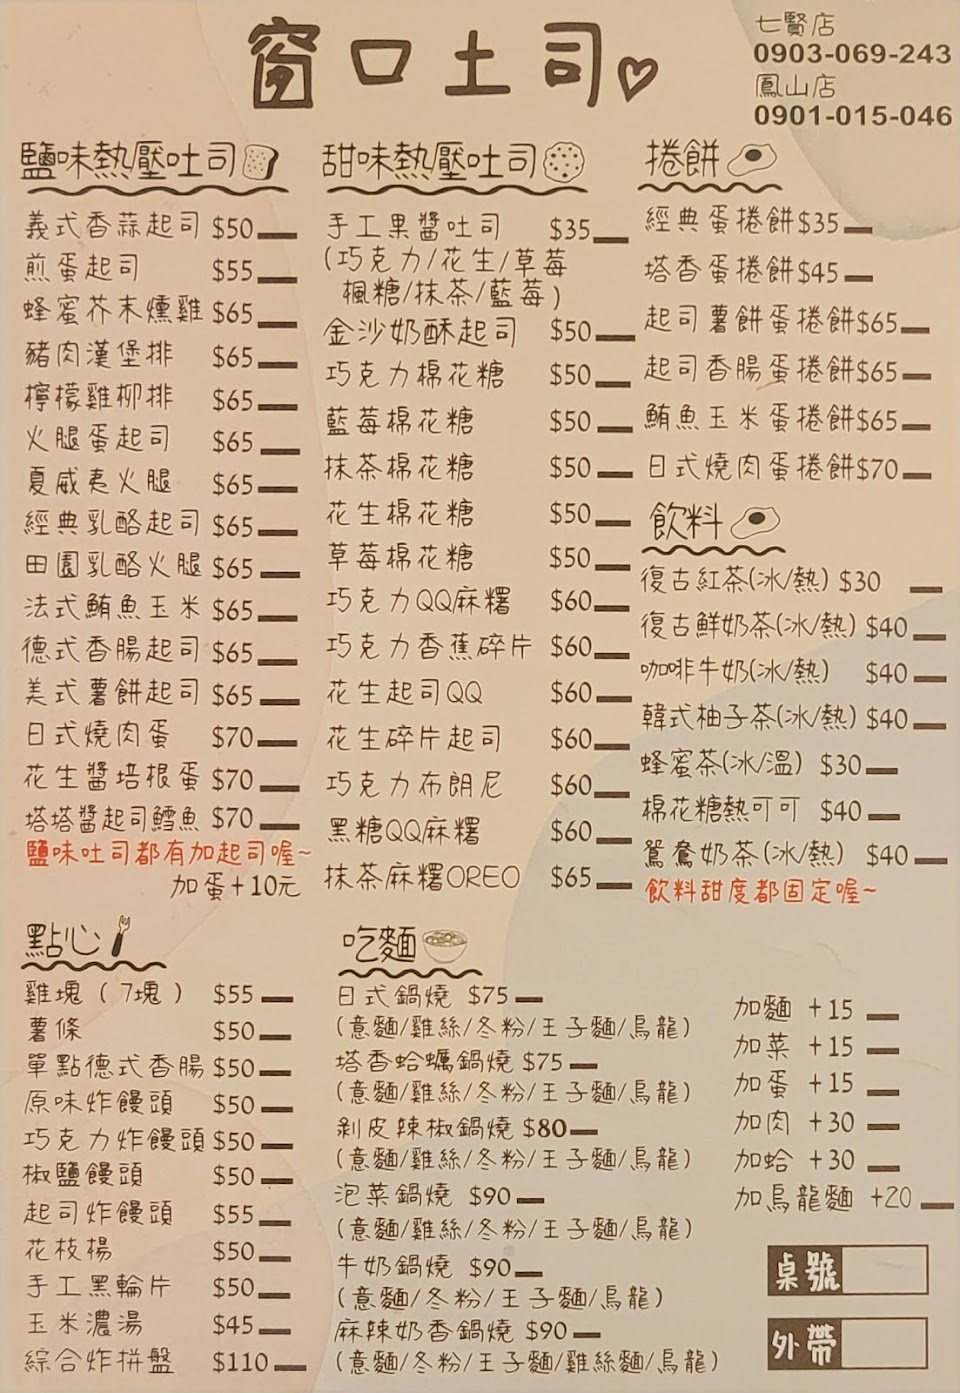 窗口土司
七賢店
0903-069-243
鳳山店
0901-015-046
鹽味熱壓吐司
義式香蒜起司 $50
煎蛋起司 $55
蜂蜜芥末燻雞 $65
豬肉漢堡排 $65
檸檬雞柳排 $65
火腿蛋起司 $65
夏威夷火腿 $65
經典乳酪起司 $65
田園乳酪火腿 $65
法式鮪魚玉米 $65
德式香腸起司 $65
美式薯餅起司 $65
日式燒肉蛋 $70
花生醬培根蛋 $70
塔塔醬起司鱈魚 $70
鹽味吐司都有加起司喔~
加蛋+10元
甜味熱壓吐司
手工果醬吐司 $35
(巧克力/花生/草莓
楓糖/抹茶/藍莓)
金沙奶酥起司 $50
巧克力棉花糖 $50
藍莓棉花糖 $50
抹茶棉花糖 $50
花生棉花糖 $50
草莓棉花糖 $50
巧克力QQ麻糬 $60
巧克力香蕉碎片 $60
花生起司QQ $60
花生碎片起司 $60
巧克力布朗尼 $60
黑糖QQ麻糬 $60
抹茶麻糬OREO $65
捲餅
經典蛋捲餅$35
塔香蛋捲餅$45
起司薯餅蛋捲餅$65
起司香腸蛋捲餅$65
鮪魚玉米蛋捲餅$65
日式燒肉蛋捲餅$70
飲料
復古紅茶(冰/熱) $30
復古鮮奶茶(冰/熱) $40
咖啡牛奶(冰/熱) $40
韓式柚子茶(冰/熱) $40
蜂蜜茶(冰/溫) $30
棉花糖熱可可 $40
鴛鴦奶茶(冰/熱) $40
飲料甜度都固定喔~
點心
雞塊(7塊) $55
薯條 $50
單點德式香腸 $50
原味炸饅頭 $50
巧克力炸饅頭 $50
椒鹽饅頭 $50
起司炸饅頭 $55
花枝楊 $50
手工黑輪片 $50
玉米濃湯 $45
綜合炸拼盤 $110
吃麵
日式鍋燒 $75
(意麵/雞絲/冬粉/王子麵/烏龍)
塔香蛤蠣鍋燒 $75
(意麵/雞絲/冬粉/王子麵/烏龍)
剝皮辣椒鍋燒 $80
(意麵/雞絲/冬粉/王子麵/烏龍)
泡菜鍋燒 $90
(意麵/雞絲/冬粉/王子麵/烏龍)
牛奶鍋燒 $90
(意麵/冬粉/王子麵/烏龍)
麻辣奶香鍋燒 $90
(意麵/冬粉/王子麵/雞絲麵/烏龍)
加麵 +15
加菜 +15
加蛋 +15
加肉 +30
加蛤 +30
加烏龍麵 +20
桌號
外帶